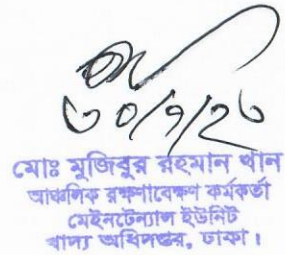 ৩০/৭/২৩
মোঃ মুজিবুর রহমান খান
আঞ্চলিক রক্ষণাবেক্ষণ কর্মকর্তা
মেইনটেন্যান্স ইউনিট
খাদ্য অধিদপ্তর, ঢাকা।